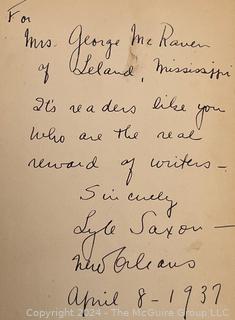 For
Mrs. George McRaven
of Leland, Mississippi
It's readers like you
who are the real
reward of writers —
Sincerely
Lyle Saxon —
New Orleans
April 8 - 1937
Copyright 2024 - The McGuire Group LLC